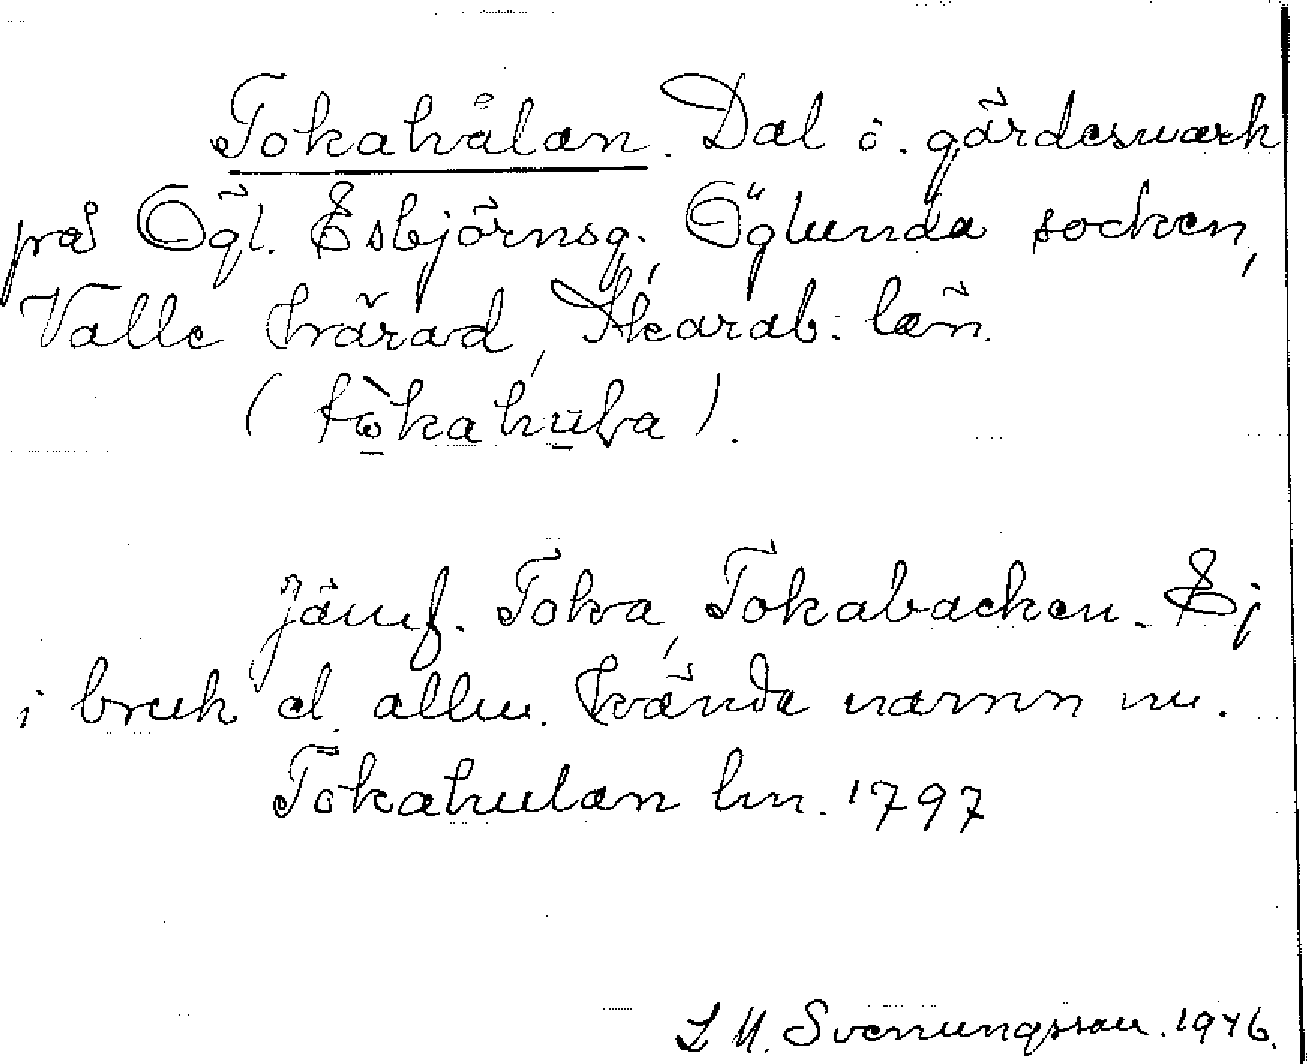 Tokahålan. Dal ö. gärdesmark
på Ögl. Esbjörnsg. Öglunda socken,
Valle härad, Skarab. län.
(tòkahuḷa).
Jämf. Toka, Tokabacken. Ej
i bruk el. allm. kända namn nu.
Tokahulan hn. 1797
L M. Svenungsson. 1946.